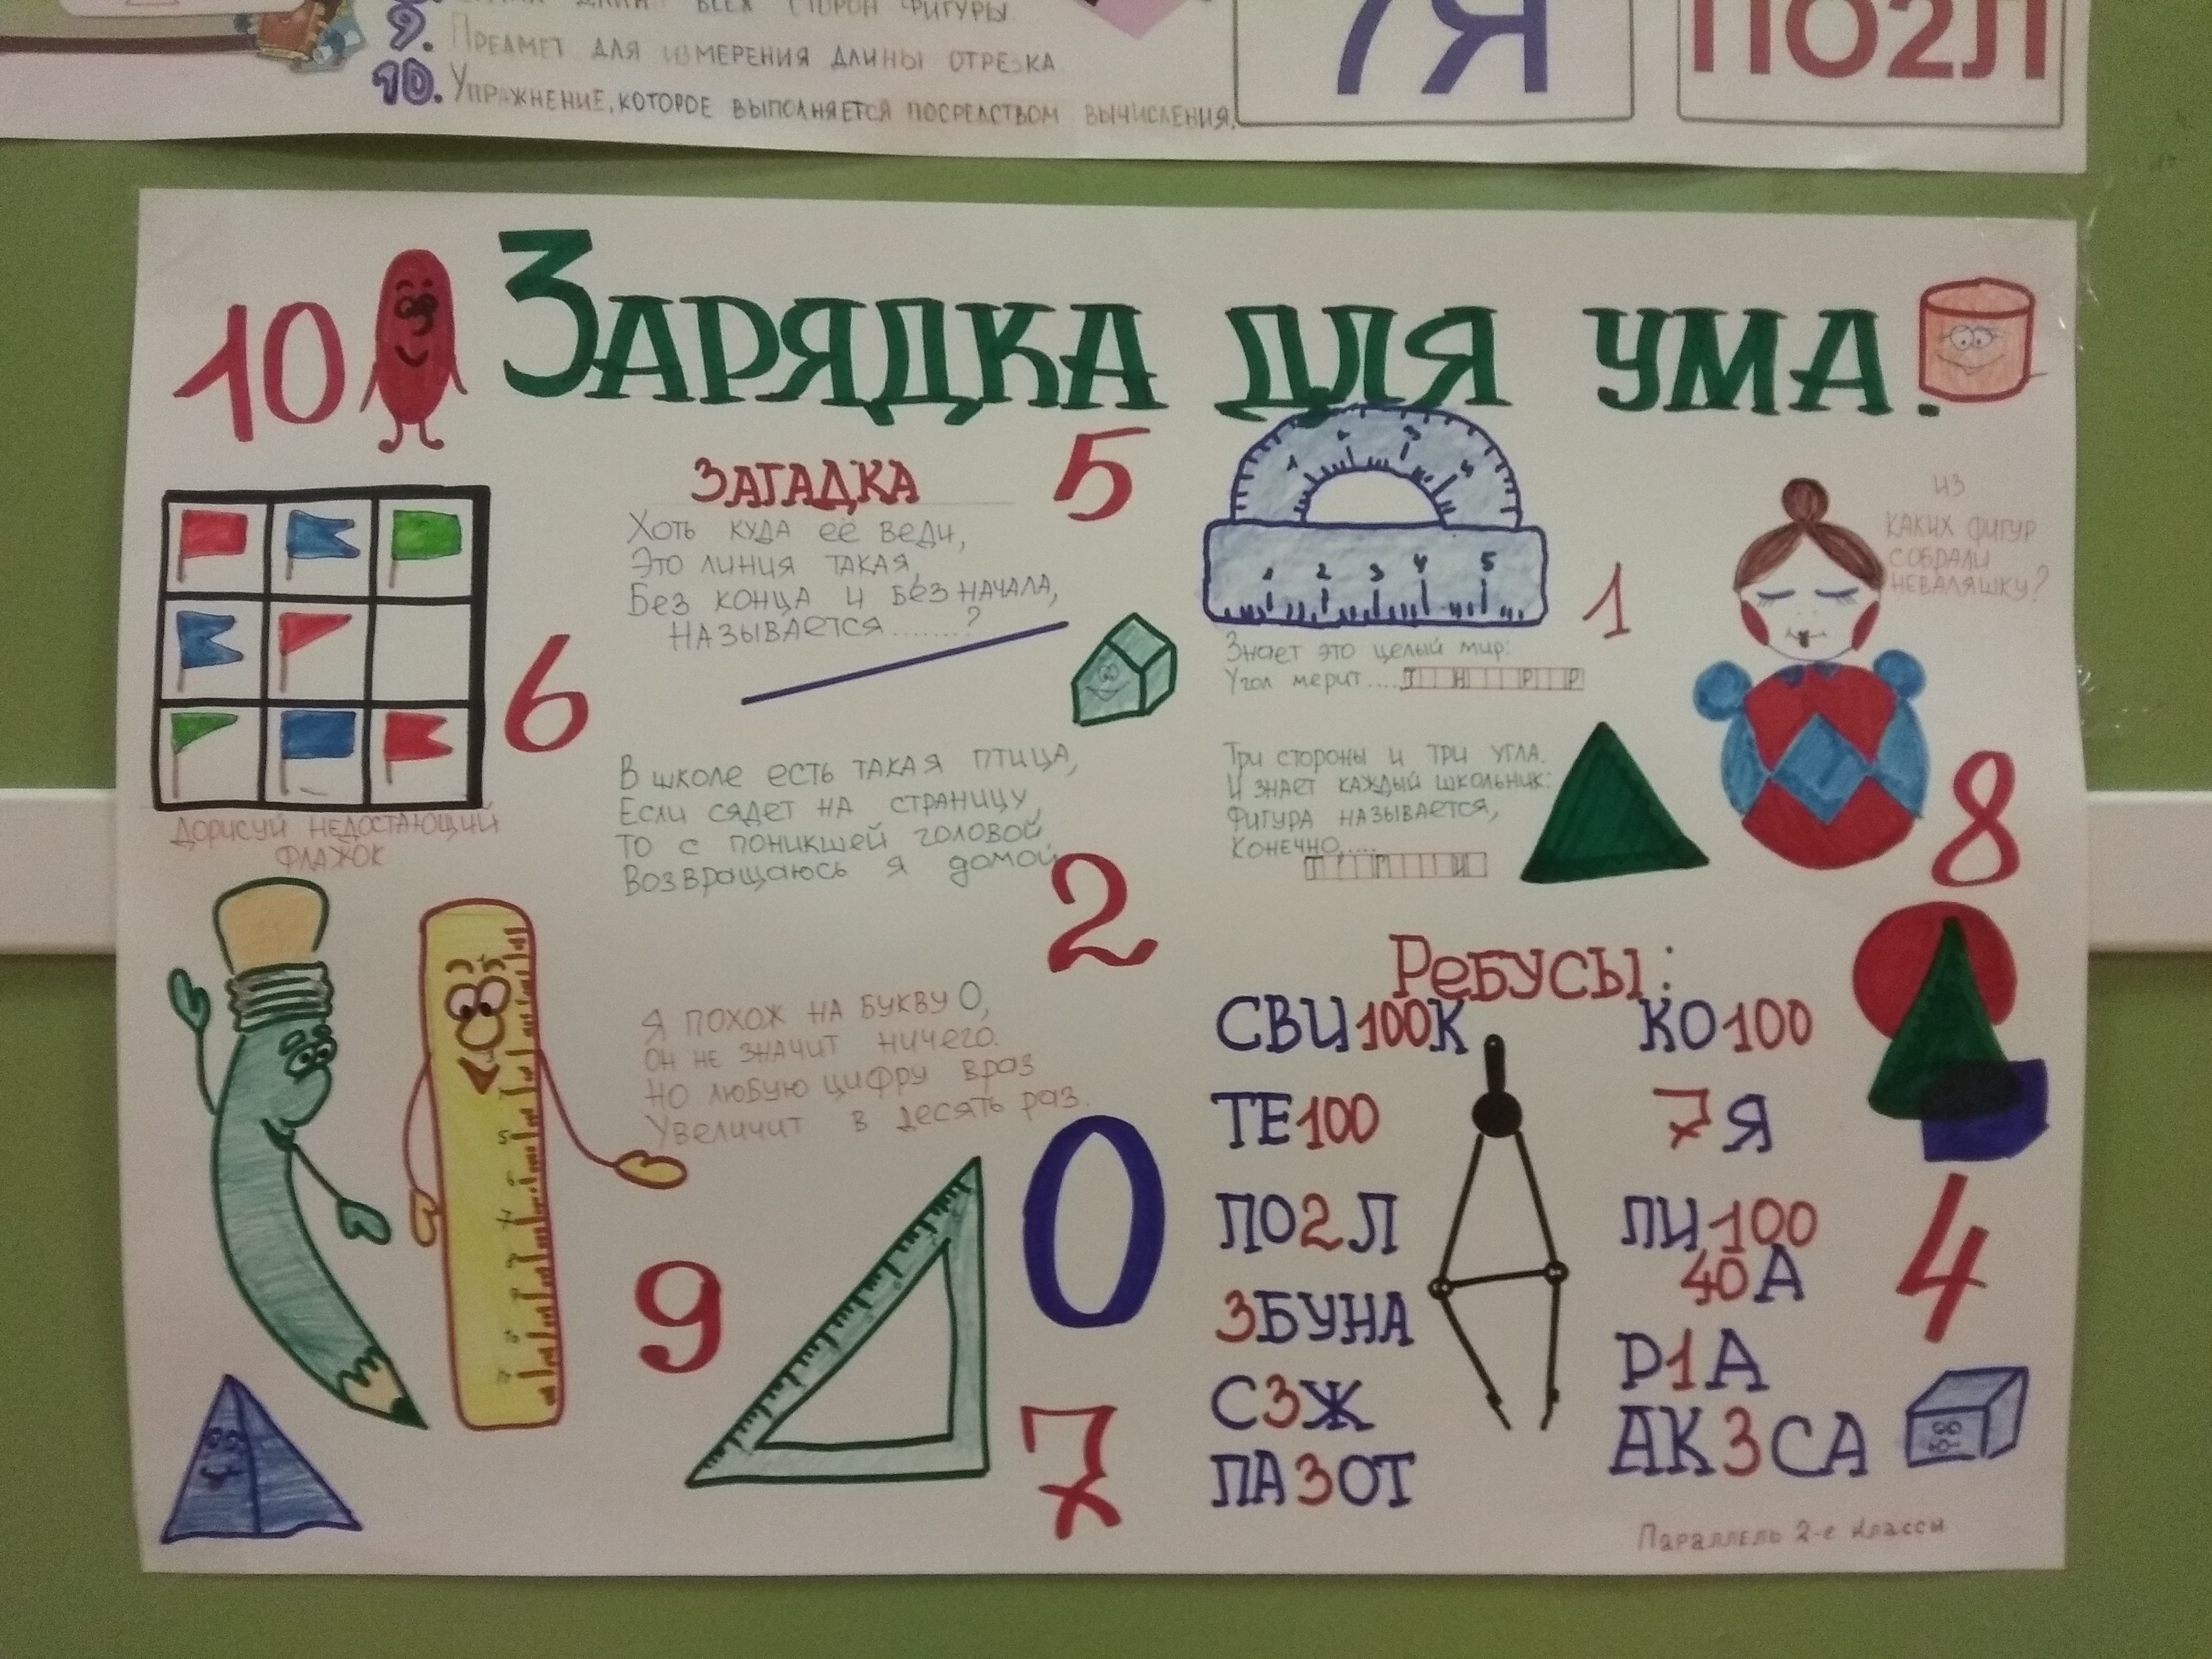 9.
ВСЕХ СТОРОН ФИГУРЫ
ПРЕДМЕТ ДЛЯ ИЗМЕРЕНИЯ ДЛИНЫ ОТРЕЗКА
10. УПРАЖНЕНИЕ, КОТОРОЕ ВЫПОЛНЯЕТСЯ ПОСРЕДСТВОМ ВЫЧИСЛЕНИЯ.
7Я
ПО2Л
10
ЗАРЯДКА ДЛЯ УМА.
ЗАГАДКА
5
Хоть куда её веди,
Это линия такая,
Без конца и без начала,
Называется.......?
6
Дорисуй недостающий
флажок
В школе есть такая птица,
Если сядет на страницу,
То с поникшей головой
Возвращаюсь я домой
2
Я похож на букву О,
Он не значит ничего.
Но любую цифру враз
Увеличит в десять раз.
0
9
7
1 2 3 4 5
1
Знает это целый мир:
Угол мерит.... Т Н Р Р
Три стороны и три угла.
И знает каждый школьник:
Фигура называется,
Конечно.....
Из
каких фигур
собрали
неваляшку?
8
Ребусы:
СВИ100К
ТЕ100
ПО2Л
3БУНА
С3Ж
ПА3ОТ
КО100
7Я
ПИ100
40А
Р1А
АК3СА
4
Параллель 2-е классы